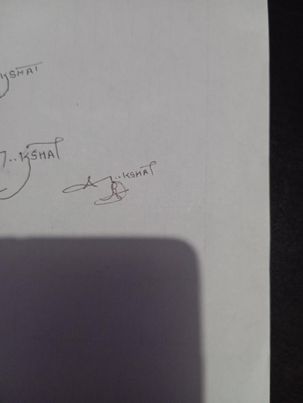 KSHAT
..KSHAT
A..KSHAT